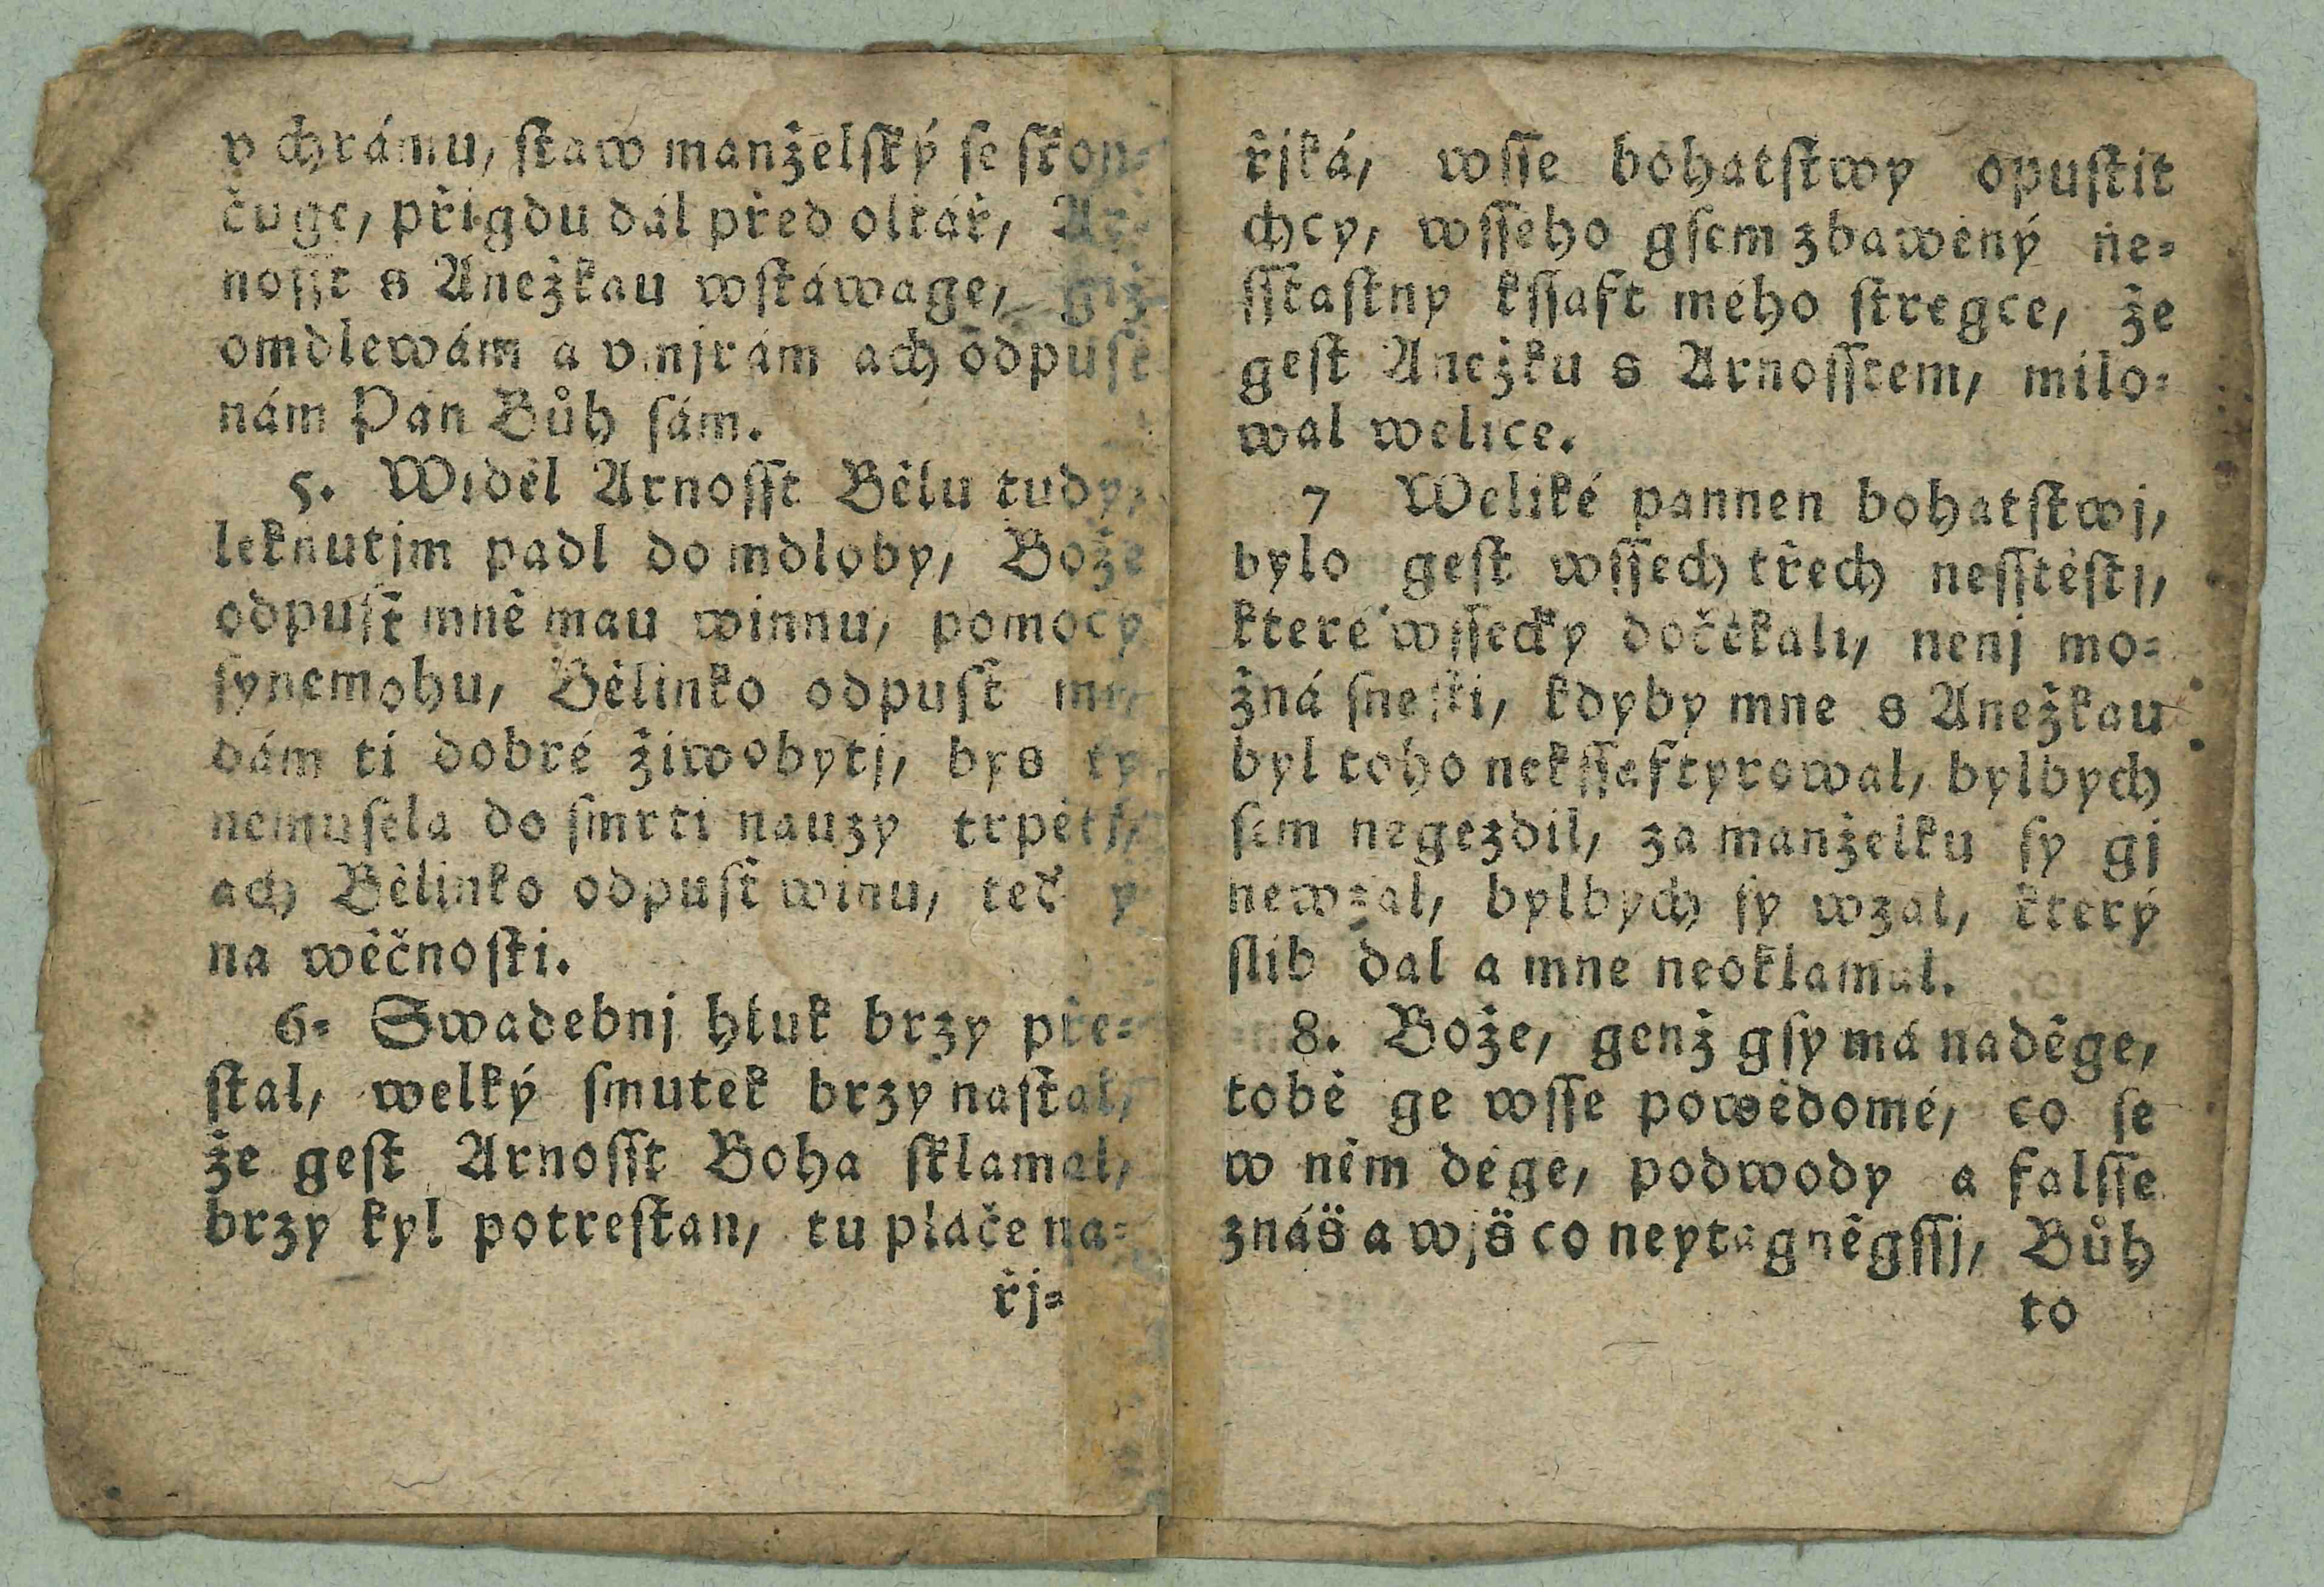 v chrámu, ſtaw manželſký ſe ſkon-
čuge, přigdu dál před oltář, Ar-
noſſt s Anežkau wſtáwage, giž
omdlewám a vmjrám ach odpuſť
nám Pán Bůh ſám.
5. Widěl Arnoſſt Bělu tudy,
leknutjm padl do mdloby, Bože
odpuſť mně mau winnu, pomocy
ſynemohu, Bělinko odpuſť
dám ti dobré žiwobytj, bys ty
nemuſela do ſmrti nauzy trpětj,
ach Bělinko odpuſť winu, teď y
na wěčnoſti.
6= Swadebnj hluk brzy pře=
ſtal, welký ſmutek brzy naſtal,
že geſt Arnoſſt Boha ſklamal,
brzy kyl potreſtan, tu pláče na=
řj=
řjká, wſſe bohatſtwy opuſtit
chcy, wſſeho gſem zbawený ne=
ſſtaſtny kſſaft mého ſtregce, že
geſt Anežku s Arnoſſtem, milo=
wal welice.
7 Weliké pannen bohatſtwj,
bylo geſt wſſech třech neſſtěſtj,
které wſſecky dočekali, nenj mo=
žná ſneſti, kdyby mne s Anežkau
byl toho nekſſaftyrowal, bylbych
ſem negezdil, za manželku ſy gj
newzal, bylbych ſy wzal, který
ſlib dal a mne neoklamal.
8. Bože, genž gſy má naděge,
tobě ge wſſe powědomé, co ſe
w něm děge, podwody a falſſe
znás̈ a wjs̈ co neytagněgſſj, Bůh
to